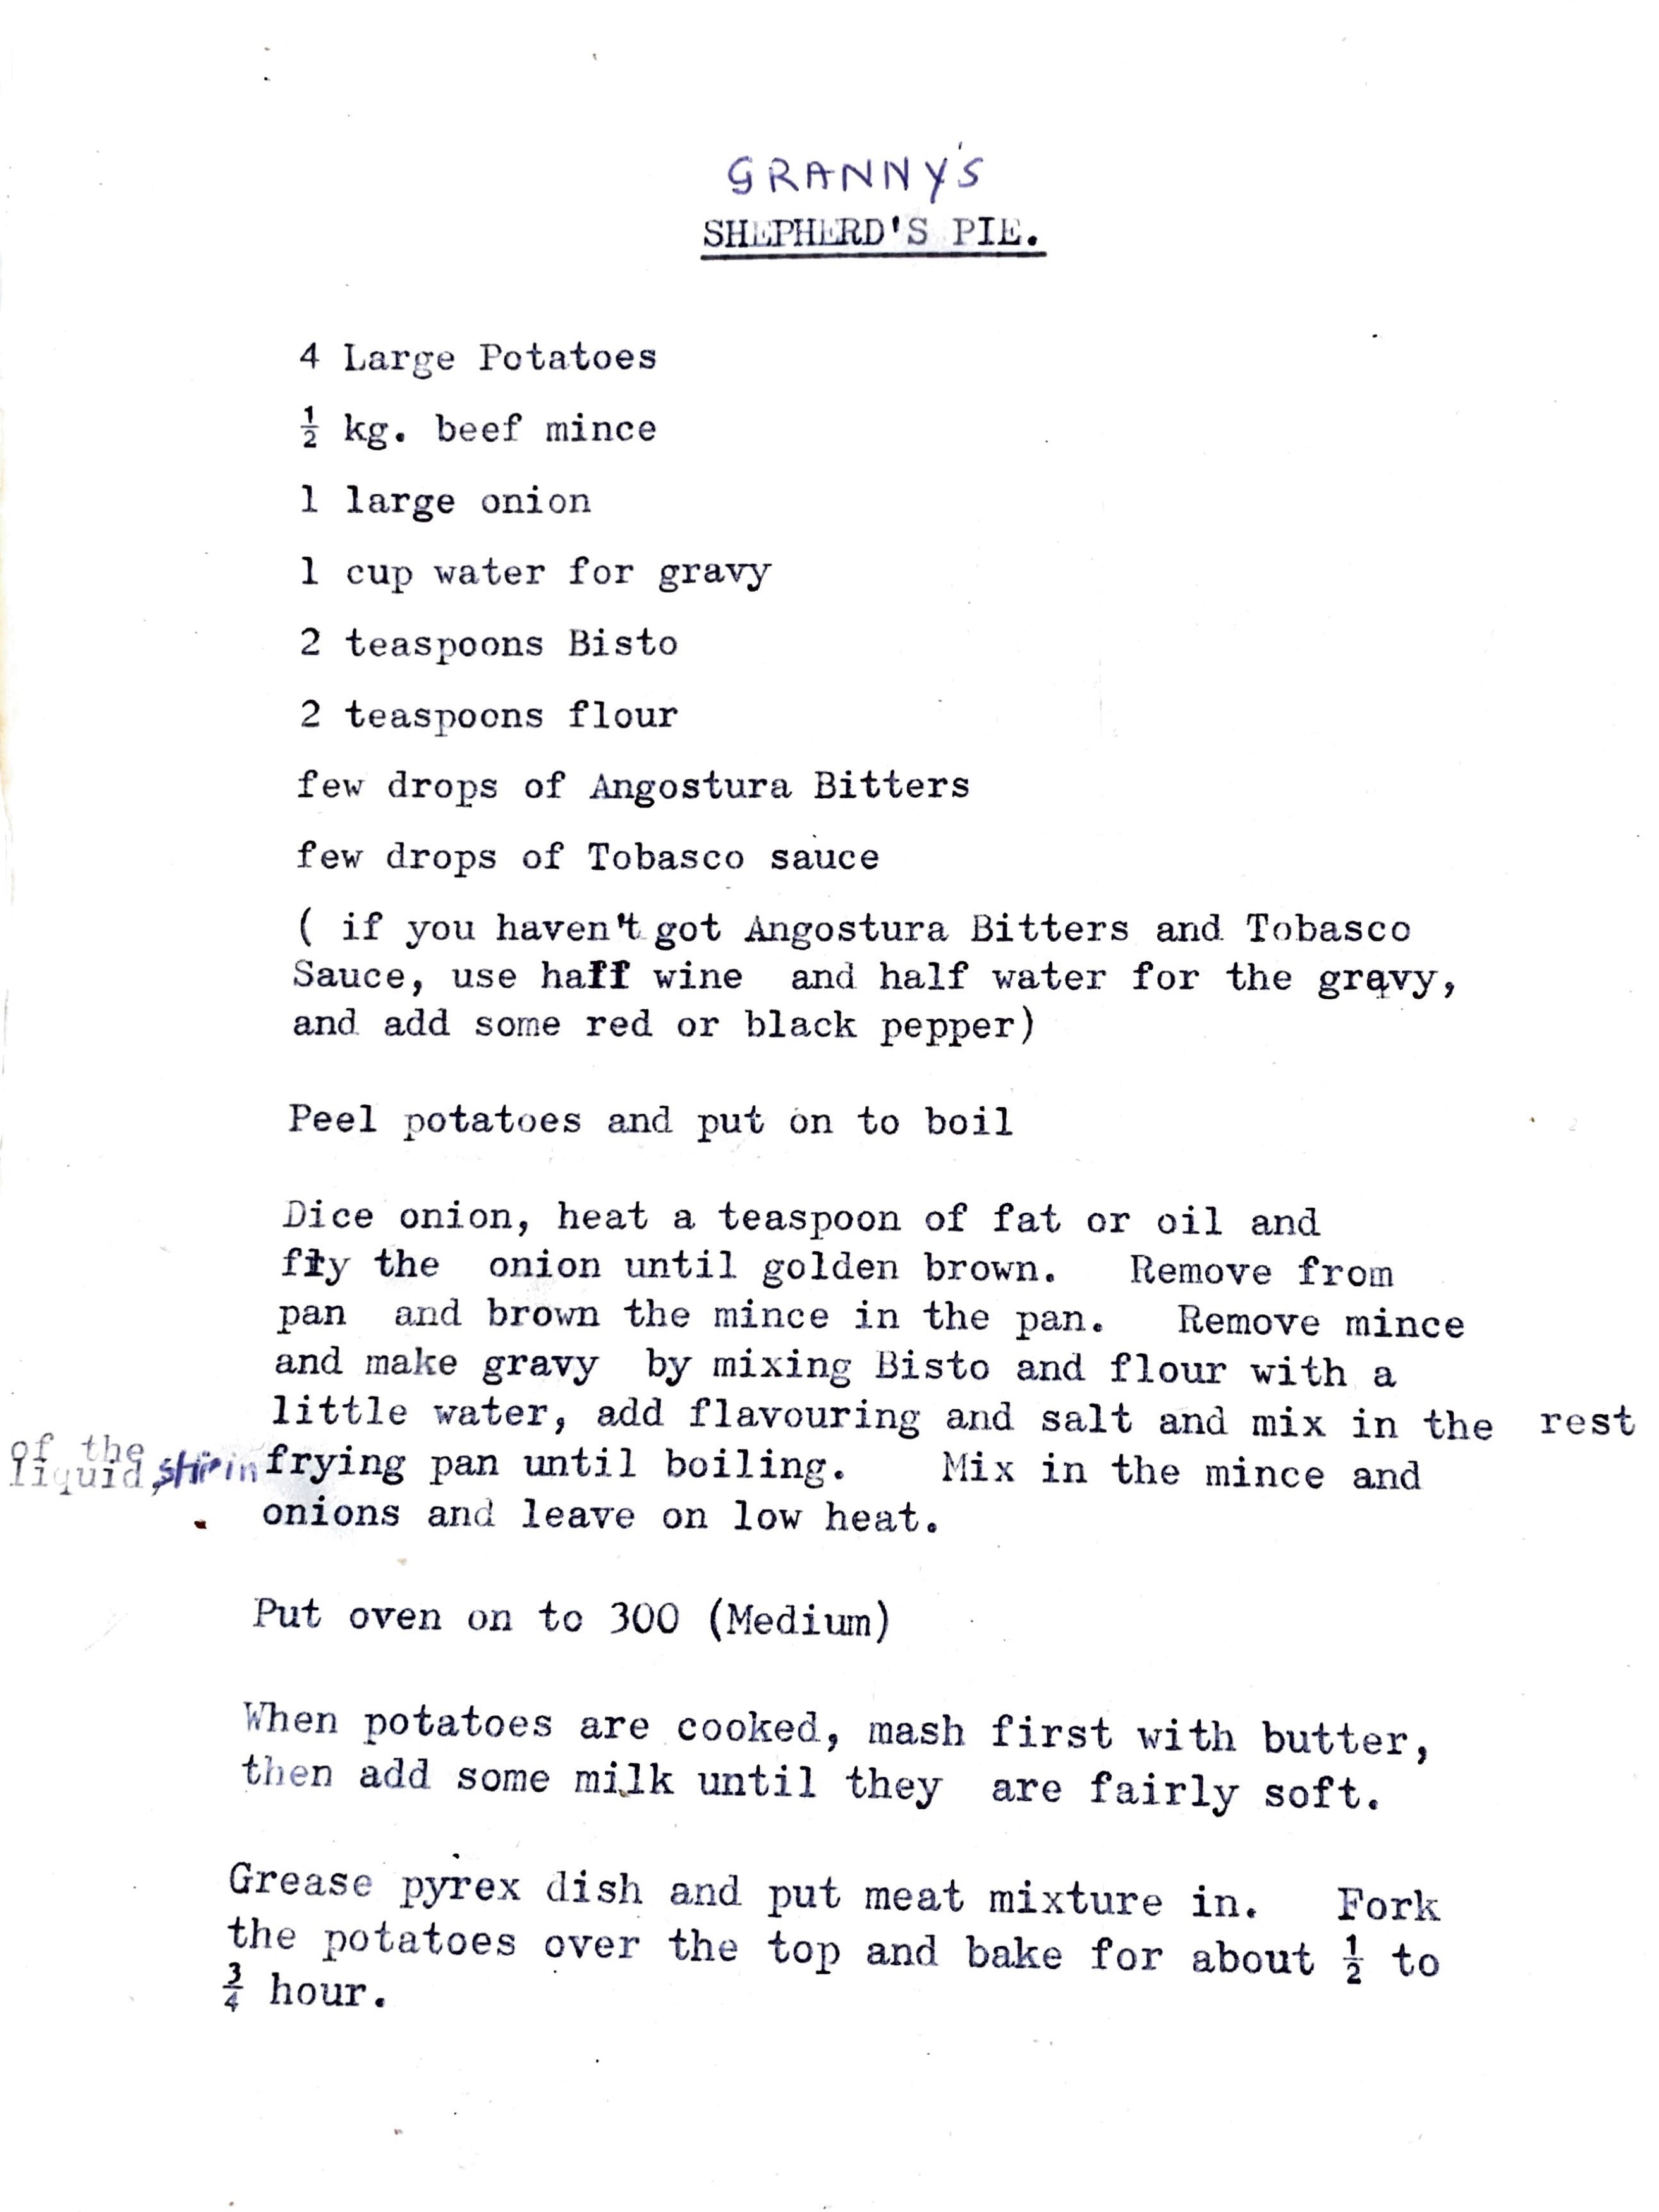 GRANNY'S
SHEPHERD'S PIE.
4 Large Potatoes
½ kg. beef mince
1 large onion
1 cup water for gravy
2 teaspoons Bisto
2 teaspoons flour
few drops of Angostura Bitters
few drops of Tobasco sauce
( if you haven't got Angostura Bitters and Tobasco
Sauce, use half wine and half water for the gravy,
and add some red or black pepper)
Peel potatoes and put on to boil
Dice onion, heat a teaspoon of fat or oil and
fry the onion until golden brown. Remove from
pan and brown the mince in the pan. Remove mince
and make gravy by mixing Bisto and flour with a
little water, add flavouring and salt and mix in the rest
of the
liquid, stir in frying pan until boiling. Mix in the mince and
onions and leave on low heat.
Put oven on to 300 (Medium)
When potatoes are cooked, mash first with butter,
then add some milk until they are fairly soft.
Grease pyrex dish and put meat mixture in. Fork
the potatoes over the top and bake for about ½ to
¾ hour.